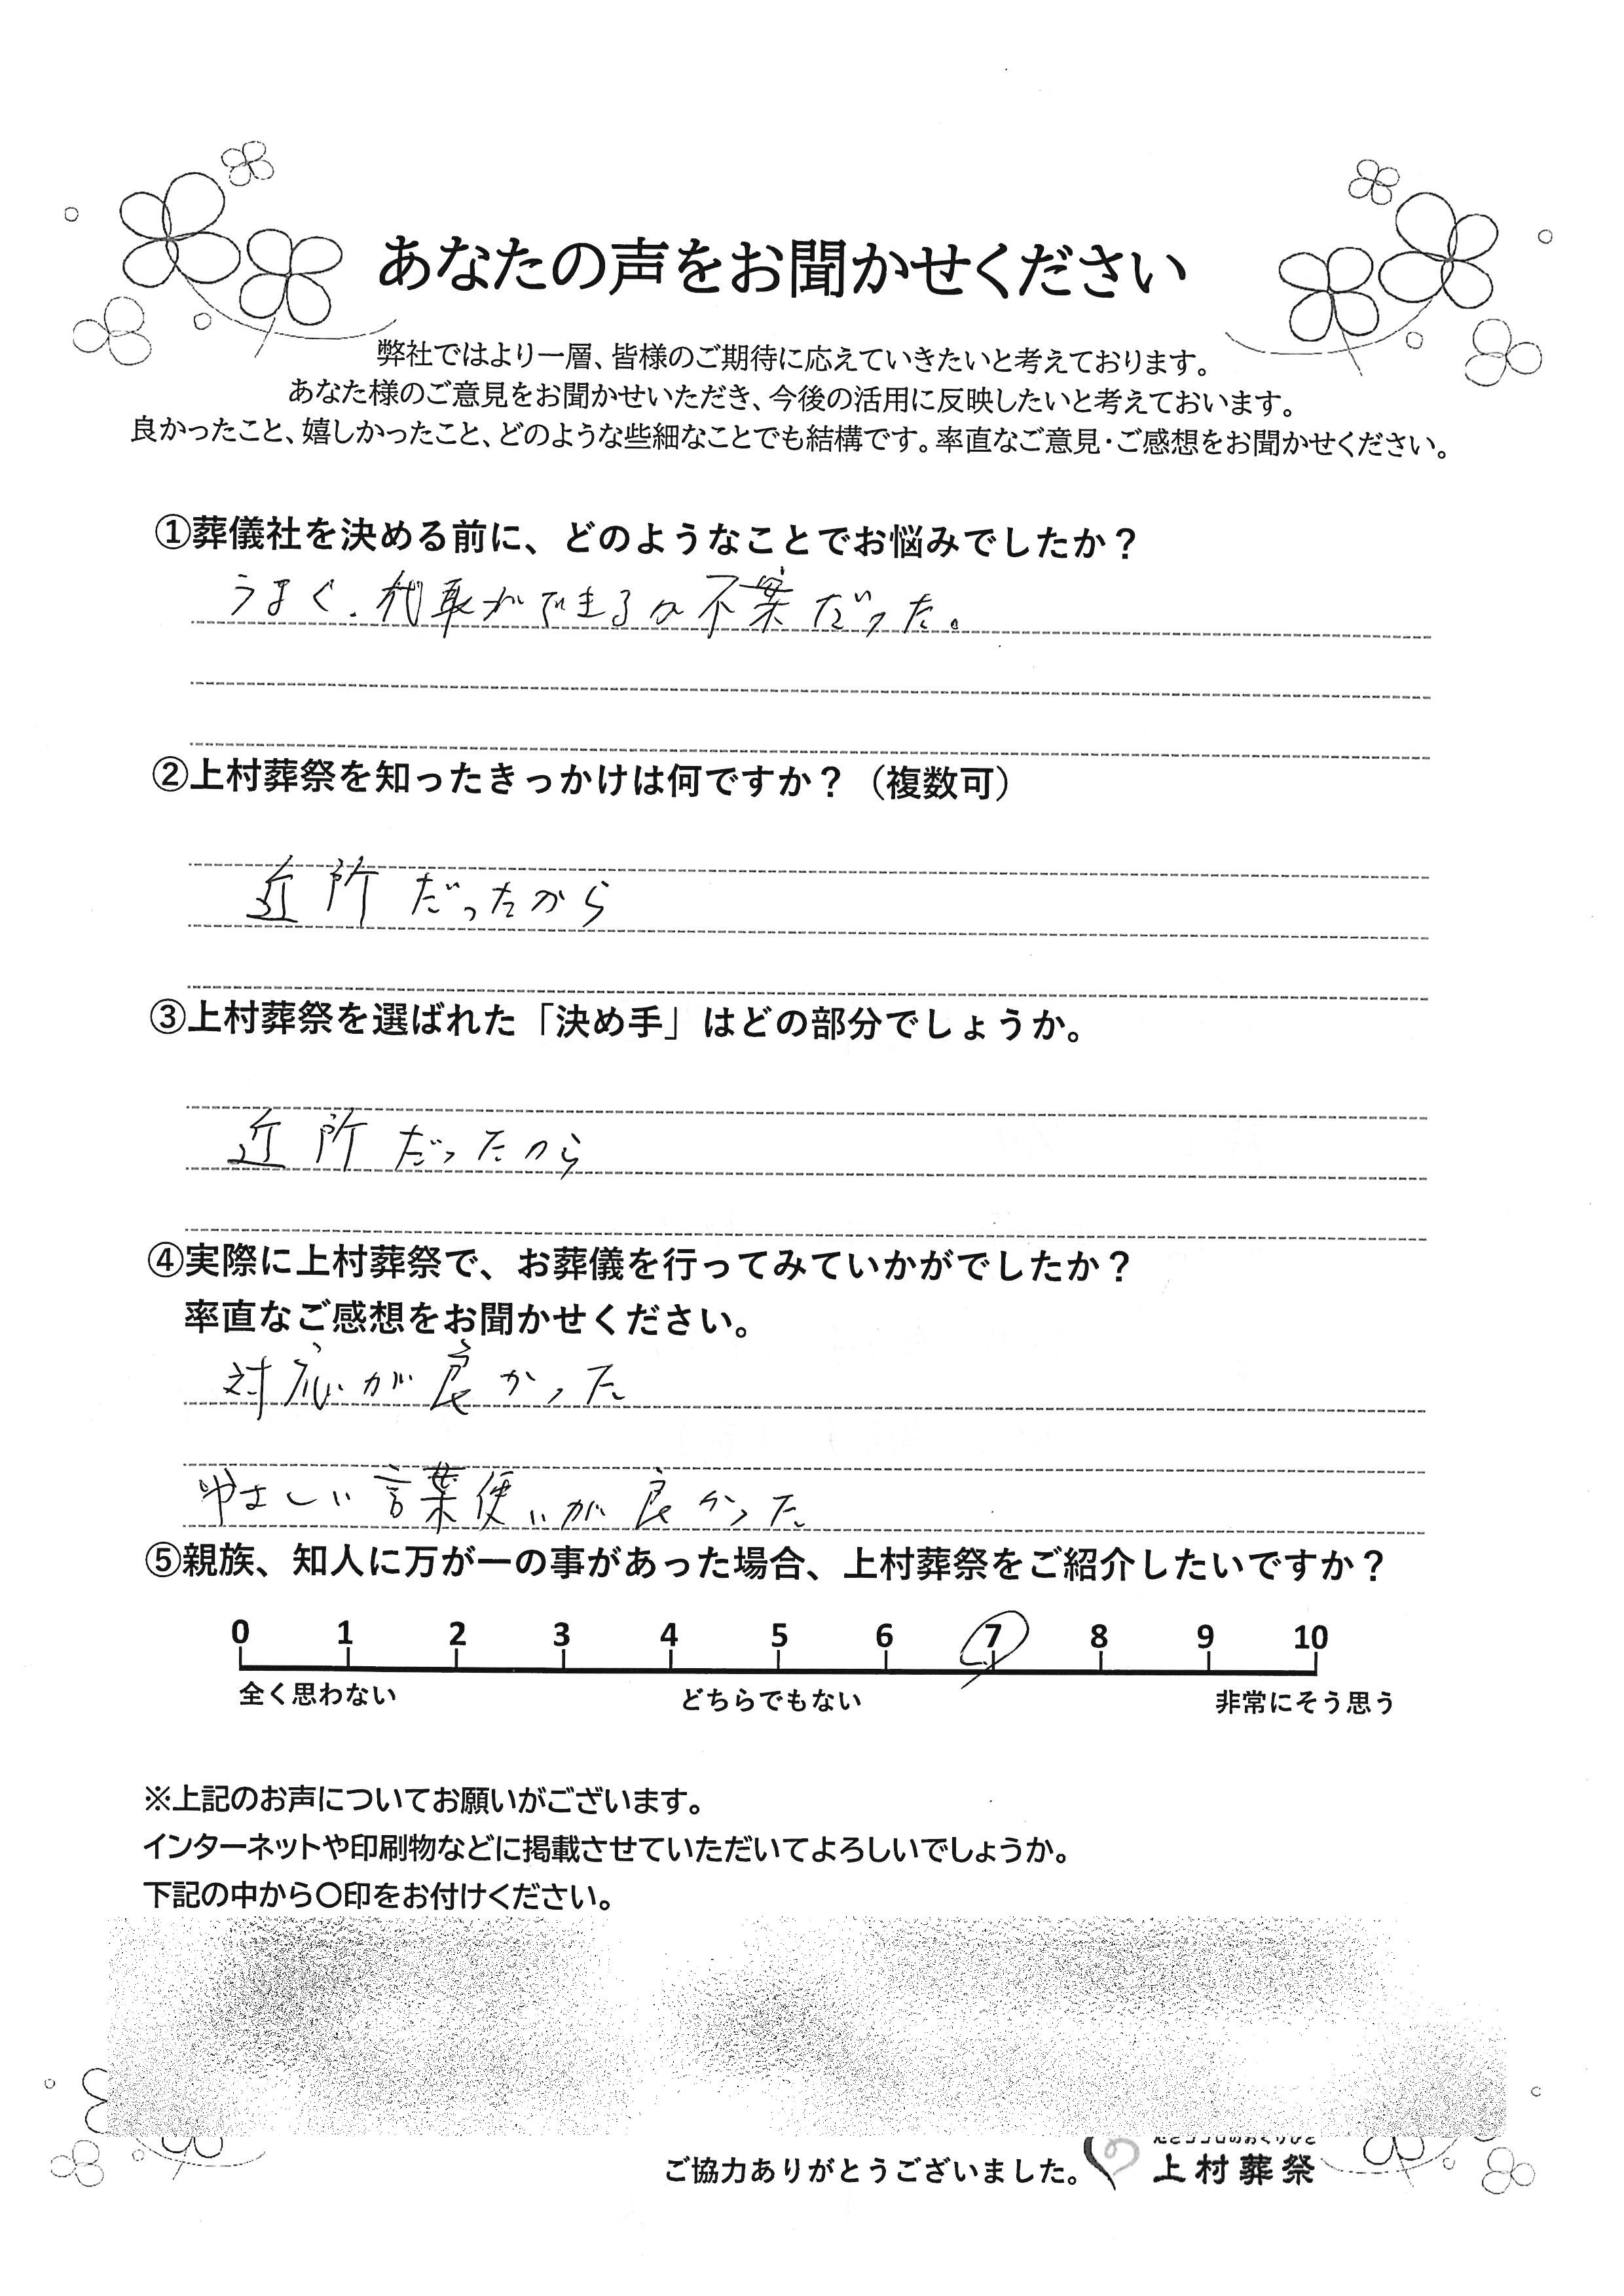 あなたの声をお聞かせください
弊社ではより一層、皆様のご期待に応えていきたいと考えております。
あなた様のご意見をお聞かせいただき、今後の活用に反映したいと考えておいます。
良かったこと、嬉しかったこと、どのような些細なことでも結構です。率直なご意見・ご感想をお聞かせください。
①葬儀社を決める前に、どのようなことでお悩みでしたか？
うまく、 ができるか不 だった。
②上村葬祭を知ったきっかけは何ですか？（複数可）
近所だったから
③上村葬祭を選ばれた「決め手」はどの部分でしょうか。
近所だったから
④実際に上村葬祭で、お葬儀を行ってみていかがでしたか？
率直なご感想をお聞かせください。
対応が良かった
やさしい言葉使いが良かった
⑤親族、知人に万が一の事があった場合、上村葬祭をご紹介したいですか？
0 1 2 3 4 5 6 7 8 9 10
全く思わない どちらでもない 非常にそう思う
※上記のお声についてお願いがございます。
インターネットや印刷物などに掲載させていただいてよろしいでしょうか。
下記の中から〇印をお付けください。
ご協力ありがとうございました。 上村葬祭